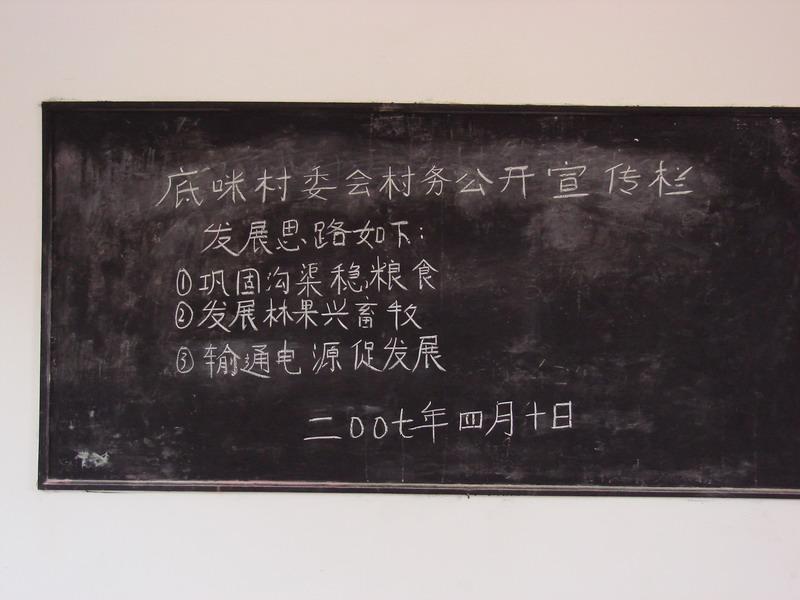 底咪村委会村务公开宣传栏
发展思路如下:
①巩固沟渠稳粮食
②发展林果兴畜牧
③输通电源促发展
二00七年四月十日